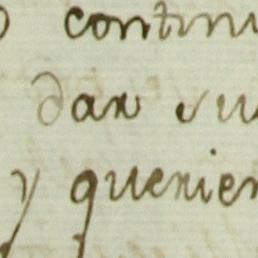 continu
dar su
y querien